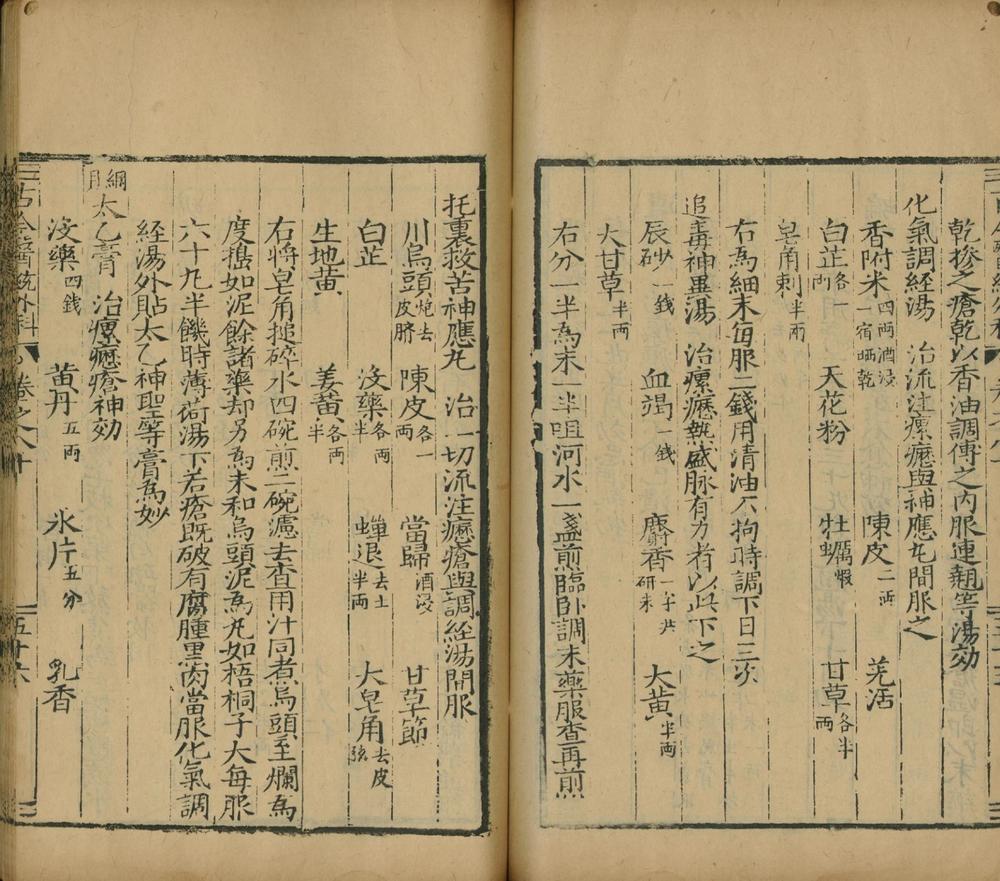 乾摻之瘡乾以香油調傅之内服連翹等湯効
化氣調經湯 治流注瘰癧與神應丸間服之
香附米四両酒浸一宿晒乾 陳皮二両 羌活
白芷各一両 天花粉 牡蠣煅 甘草各半両
皂角刺半両
右爲細末每服二錢用清油不拘時調下日三次
追毒神異湯 治瘰癧熱盛脉有力者以此下之
辰砂一錢 血竭一錢 麝香一字共研末 大黄半両
大甘草半両
右分一半爲末一半咀河水一盞煎臨卧調末藥服查再煎
托裏救苦神應丸 治一切流注癧瘡與調經湯間服
川烏頭炮去皮臍 陳皮各一両 當歸酒浸 甘草節
白芷 没藥各両 蟬退去土半両 大皂角去皮弦
生地黄 姜黄各両半
右將皂角搥碎水四碗煎二碗濾去查用汁同煮烏頭至爛爲
度搗如泥餘諸藥却另爲末和烏頭泥爲丸如梧桐子大每服
六十九半饑時薄荷湯下若瘡既破有腐腫黒肉當服化氣調
經湯外貼太乙神聖等膏爲妙
綱目太乙膏 治瘰癧瘡神効
没藥四錢 黄丹五両 氷片五分 乳香
古今醫統外科 卷之八十 五十六